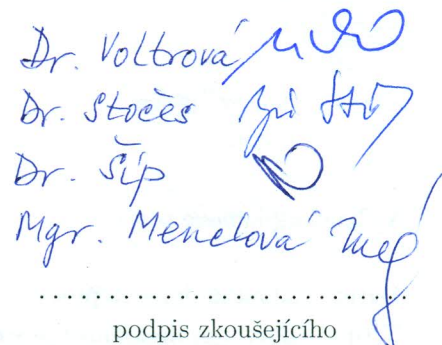 Dr. Voltrová
Dr. Stočes
Dr. Šíp
Mgr. Menclová
podpis zkoušejícího